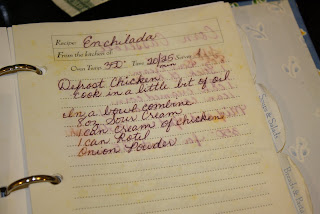 Recipe: Enchilada
From the kitchen of
Oven Temp 350° Time 20/25 min Serves
Defrost Chicken
Cook in a little bit of oil
In a bowl combine
8oz Sour Cream
1 can cream of chicken
1 can Rotel
Onion Powder